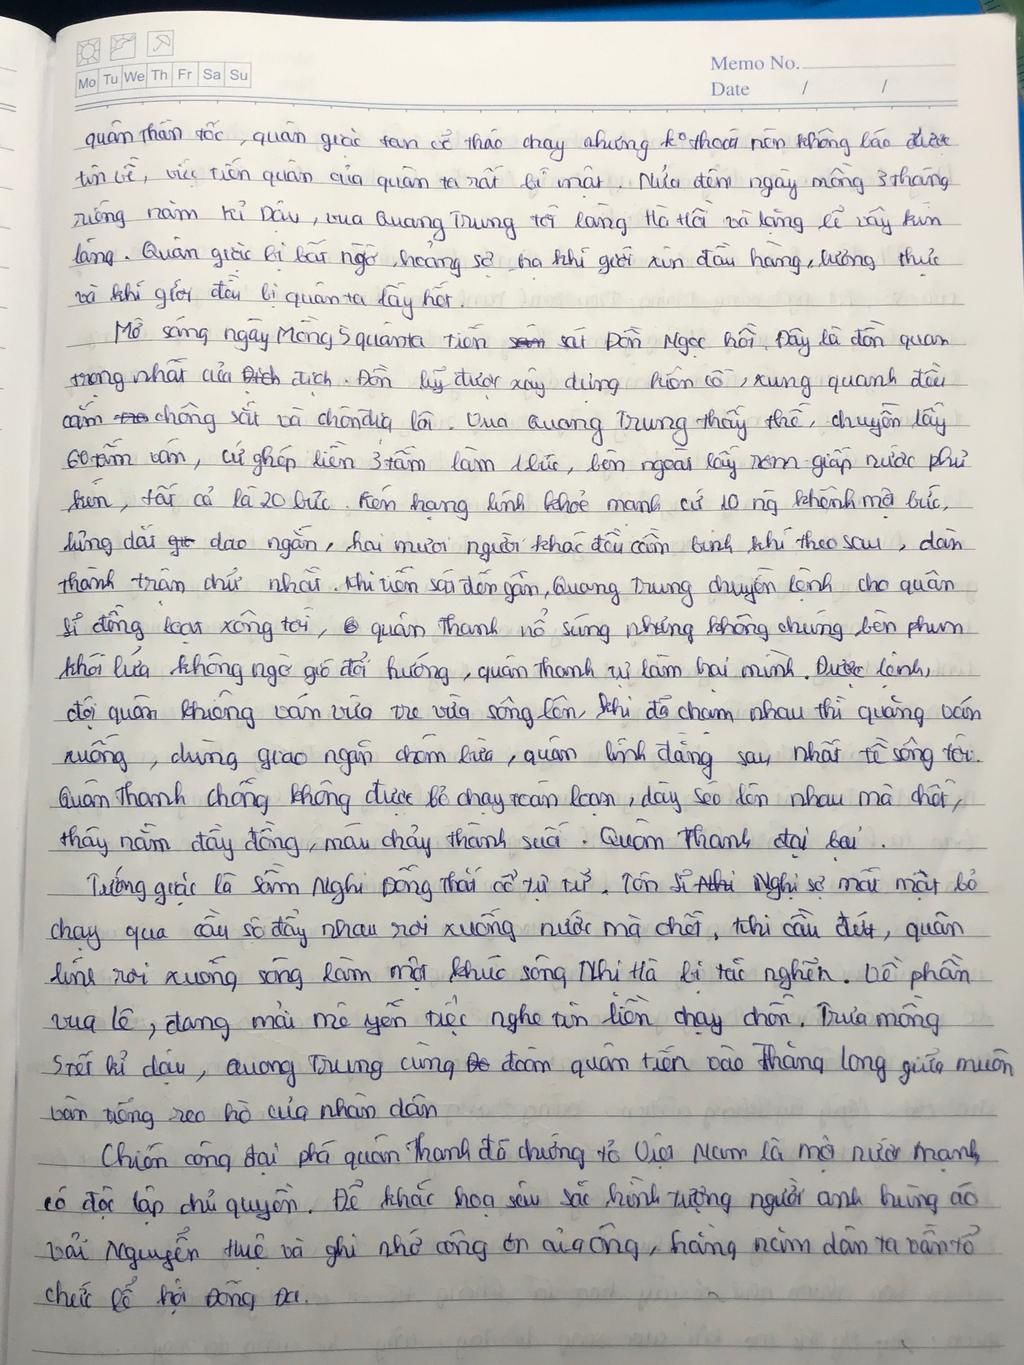 Memo No.
Mo Tu We Th Fr Sa Su
Date / /
quân thần tốc, quân giặc tan vỡ tháo chạy nhưng k° thoát nên không báo được
tin về, việc tiến quân của quân ta rất bí mật. Nửa đêm ngày mồng 3 tháng
riêng năm Kỉ Dậu, vua Quang Trung tới làng Hà Hồi và lặng lẽ vây kín
làng. Quân giặc bị bất ngờ, hoảng sợ hạ khí giới xin đầu hàng, lương thực
và khí giới đều bị quân ta lấy hết.
Mờ sáng ngày Mồng 5 quân ta tiến sát Đồn Ngọc hồi. Đây là đồn quan
trọng nhất của địch. Đồn luỹ được xây dựng kiên cố, xung quanh đều
cắm chông sắt và chôn địa lôi. Vua Quang Trung thấy thế, chuyền lấy
60 tấm ván, cứ ghép liền 3 tấm làm 1 bức, bên ngoài lấy rơm giấp nước phủ
kín, tất cả là 20 bức. Kén hạng lính khoẻ mạnh cứ 10 ng khênh một bức,
lưng dắt dao ngắn, hai mươi người khác đều cầm binh khí theo sau, dàn
thành trận chữ nhất. Khi tiến sát đến gần, Quang Trung chuyền lệnh cho quân
sĩ đồng loạt xông tới, quân Thanh nổ súng nhưng không chúng, bèn phun
khói lửa không ngờ gió đổi hướng, quân Thanh tự làm hại mình. Được lệnh,
đội quân khiêng ván vừa tre vừa sông lên, khi đã chạm nhau thì quăng ván
xuống, dùng giao ngắn chém bừa, quân lính đằng sau nhất tề sông tới.
Quân Thanh chống không được bỏ chạy toán loạn, dày séo lên nhau mà chết,
thây nằm đầy đồng, máu chảy thành suối. Quân Thanh đại bại.
Tướng giặc là Sầm Nghi Đống thắt cổ tự tử. Tôn Sĩ Nghị sợ mất mật bỏ
chạy qua cầu sô đẩy nhau rơi xuống nước mà chết. Khi cầu đứt, quân
lính rơi xuống sông làm một khúc sông Nhị Hà bị tắc nghẽn. Về phần
vua Lê, đang mải mê yến tiệc nghe tin liền chạy chốn. Trưa mồng
5 tết kỉ dậu, Quang Trung cùng đoàn quân tiến vào Thăng Long giữa muôn
vàn tiếng reo hò của nhân dân
Chiến công đại phá quân Thanh đã chứng tỏ Việt Nam là một nước mạnh
có độc lập chủ quyền. Để khắc hoạ sâu sắc hình tượng người anh hùng áo
vải Nguyễn Huệ và ghi nhớ công ơn của ông, hàng năm dân ta vẫn tổ
chức lễ hội Đống Đa.